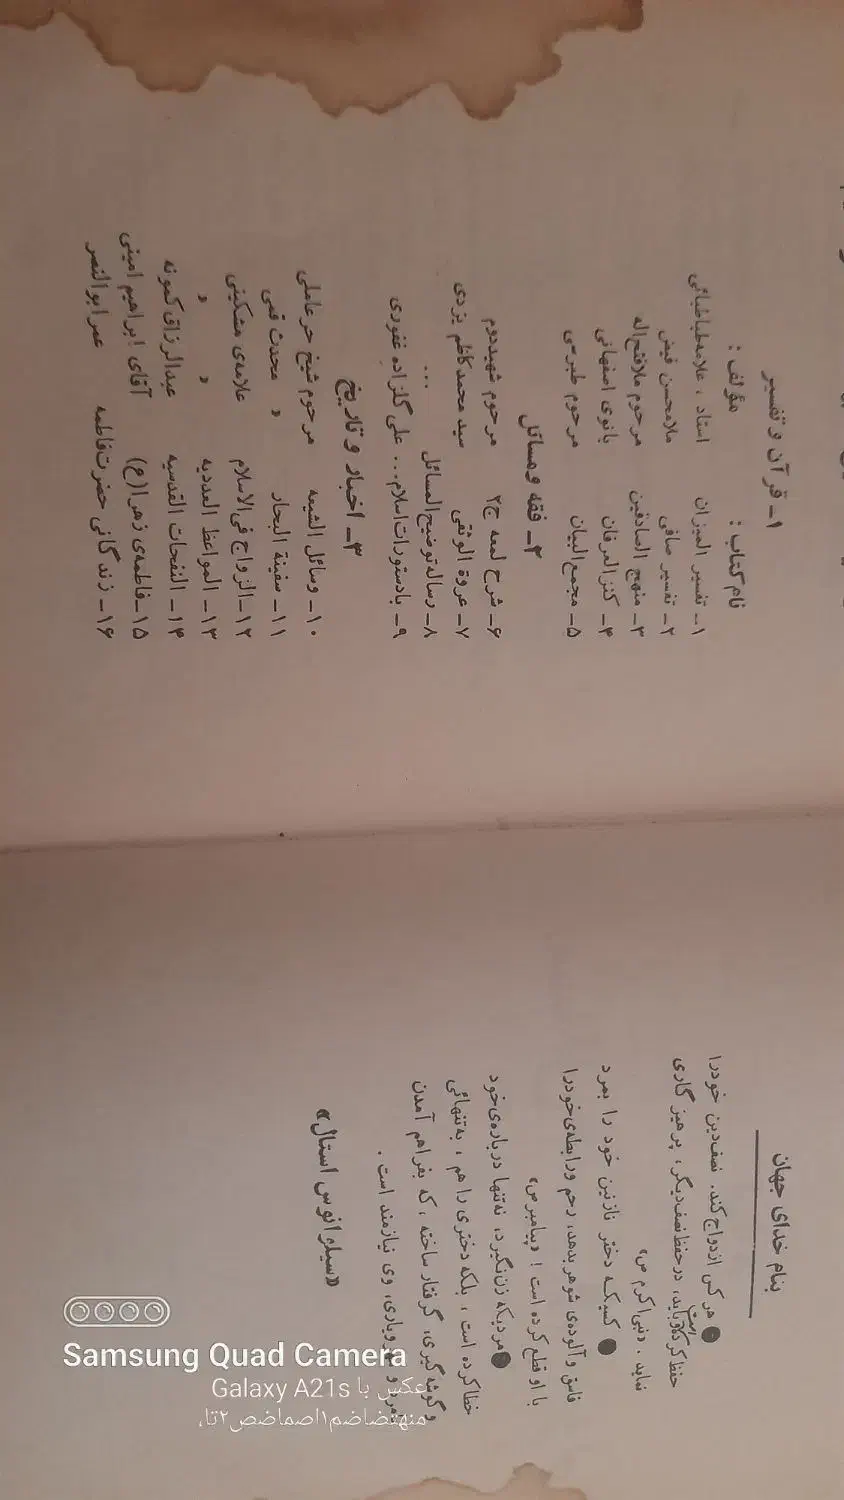 بنام خدای جهان
● هر کس ازدواج کند. نصف دین خود را
است
حفظ کرده و باید، در حفظ نصف دیگر، پرهیز گاری
نماید. «نبی اکرم ص»
● کسیکه دختر نازنین خود را بمرد
فاسق و آلوده‌ی شوهر بدهد، رحم و رابطه‌ی خود را
با او قطع کرده است! «پیامبر ص»
● مردیکه زن نگیرد، نه‌تنها درباره‌ی خود
خطا کرده است، بلکه دختری را هم، به‌تنهائی
و گوشه گیری، گرفتار ساخته، که بفراهم آمدن
وی نیازمند است.
«سیلوانوس استال»
۱ـ قرآن و تفسیر
نام کتاب: مؤلف:
۱ـ تفسیر المیزان استاد، علامه طباطبائی
۲ـ تفسیر صافی ملامحسن فیض
۳ـ منهج الصادقین مرحوم ملافتح‌اله
۴ـ کنز العرفان بانوی اصفهانی
۵ـ مجمع البیان مرحوم طبرسی
۲ـ فقه و مسائل
۶ـ شرح لمعه ج۲ مرحوم شهید دوم
۷ـ عروة الوثقی سید محمد کاظم یزدی
۸ـ رساله توضیح المسائل ...
۹ـ با دستورات اسلام... علی گلزاده غفوری
۳ـ اخبار و تاریخ
۱۰ـ وسائل الشیعه مرحوم شیخ حر عاملی
۱۱ـ سفینة البحار « محدث قمی
۱۲ـ الزواج فی‌الاسلام علامه‌ی مشکینی
۱۳ـ المواعظ العددیه « «
۱۴ـ النفحات القدسیه عبدالرزاق کمونه
۱۵ـ فاطمه‌ی زهرا(ع) آقای ابراهیم امینی
۱۶ـ زندگانی حضرت فاطمه عمر ابوالنصر
Samsung Quad Camera
عکس با Galaxy A21s